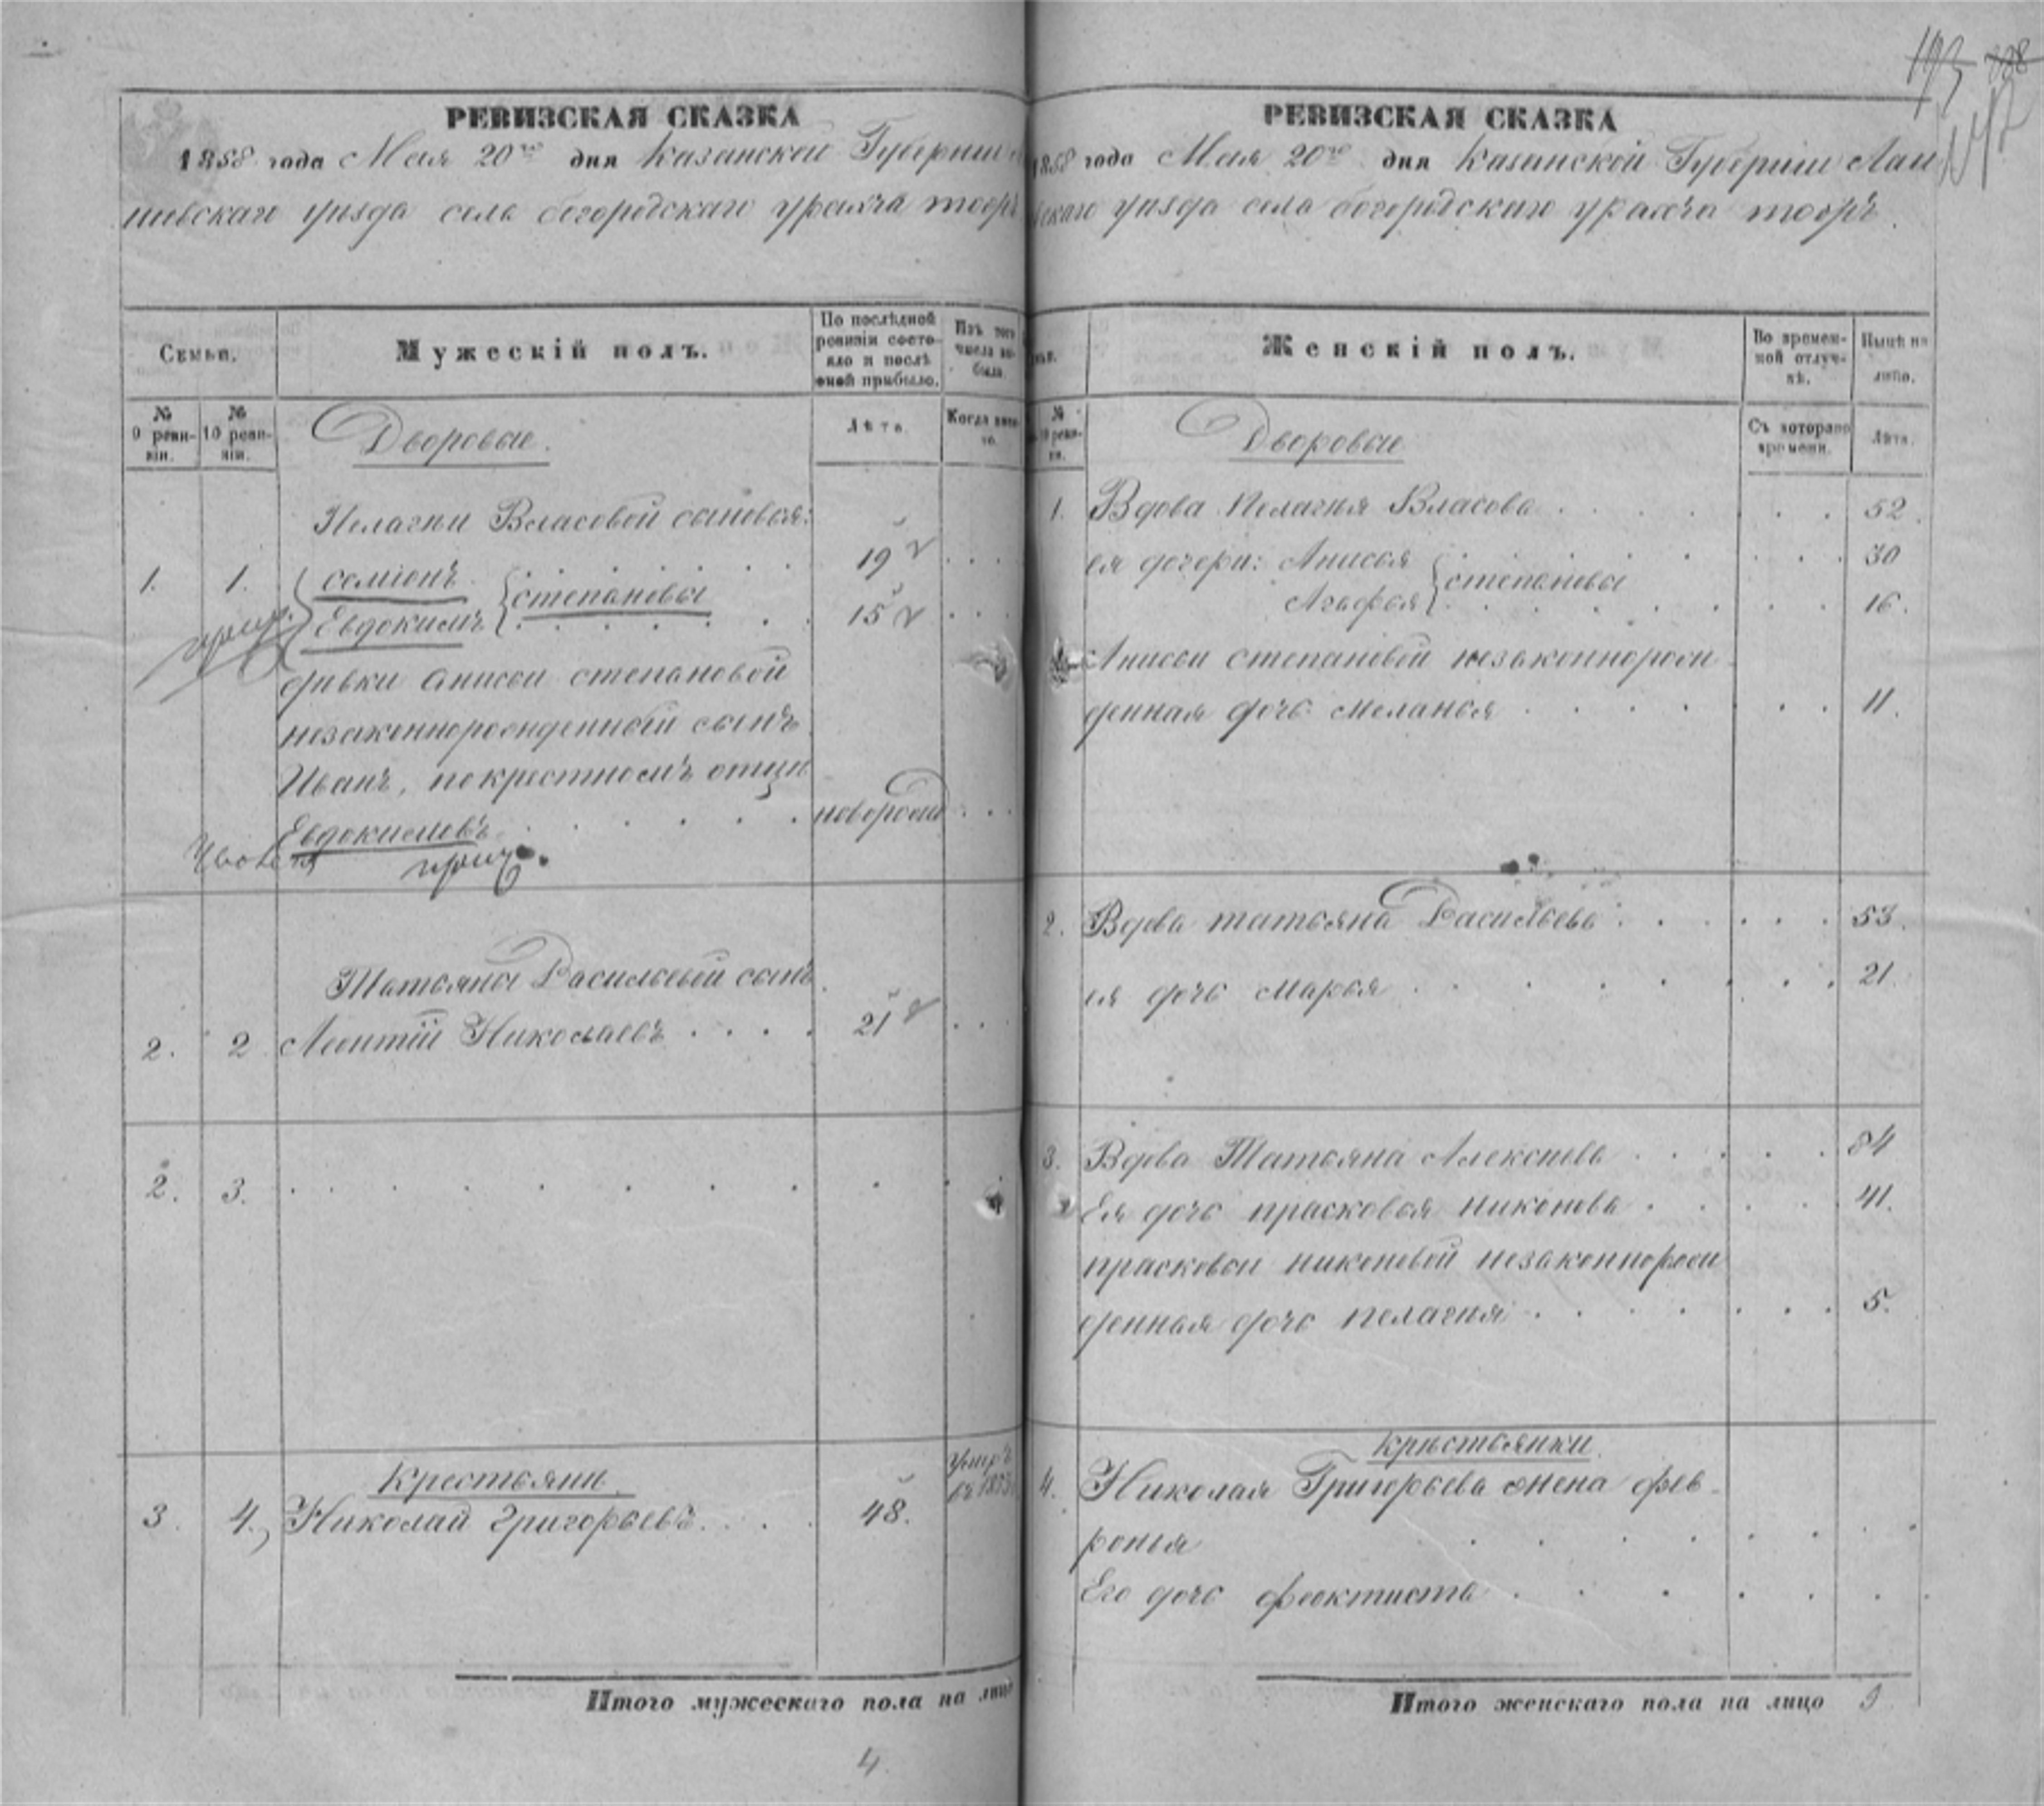 РЕВИЗСКАЯ СКАЗКА
1858 года Мая 20го дня Казанской Губернии
шевскаго уѣзда села богородскаго урахча тоорг
Семьи.
Мужескій полъ.
По послѣдней ревизіи состояло и послѣ оной прибыло.
Изъ того числа выбыло.
№ 9 ревизіи.
№ 10 ревизіи.
Дворовые.
Лѣта.
Когда именно.
Пелагеи Власовой сыновья:
1. 1. семіонъ 19
Евдокимъ } степановы 15
дѣвки анисьи степановой
незаконнорожденный сынъ
Иванъ, по крестномъ отцѣ
Евдокимовъ новорожд
Татьяны Васильевой сынъ
2. 2 Леонтій Николаевъ 21
2. 3.
Крестьяни
3. 4. Николай Григорьевъ 48. умеръ въ 1855
Итого мужескаго пола на лицо
4.
193
РЕВИЗСКАЯ СКАЗКА
1858 года Мая 20го дня Казанской Губерніи Лаи
вскаго уѣзда села богородскаго урахча тоорг.
Женскій полъ.
Во временной отлучкѣ.
Нынѣ на лицо.
Дворовые
Съ котораго времени.
Лѣта.
1. Вдова Пелагия Власова 52.
ея дочери: Анисья 30
Агафья } степановы 16.
Анисьи степановой незаконнорож
денная дочь меланья 11.
2. Вдова татьяна Васильева 53.
ея дочь марья 21
3. Вдова Татьяна Алексѣева 84
Ея дочь прасковья никонова 41.
прасковьи никоновой незаконнорож
денная дочь пелагия 5.
крестьянки
4. Николая Григорьева жена фев
ронья
Его дочь феоктиста
Итого женскаго пола на лицо 9